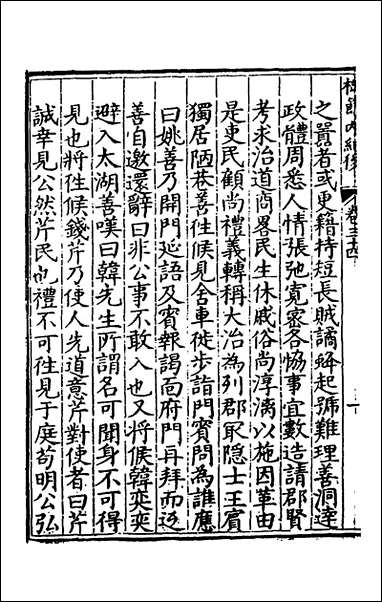 之異者或更籍持短長賊譎蜂起號難理善洞達
政體周悉人情張弛寬密各協事宜數造請郡賢
考求治道商畧民生休戚俗尚淳漓以施因革由
是吏民顧尚禮義轉稱大治為列郡取隱士王賓
獨居陋巷善往候見舍車徒步詣門賓問為誰應
曰姚善乃開門延語及賓報謁面府門再拜而返
善自邀還辭曰非公事不敢入也又將候韓奕奕
避入太湖善嘆曰韓先生所謂名可聞身不可得
見也將往候錢芹乃使人先道意芹對使者曰芹
誠幸見公然芹民也禮不可往見于庭苟明公弘